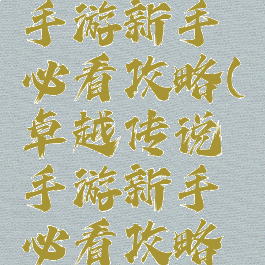 手游新手
必看攻略(
卓越传说
手游新手
必看攻略